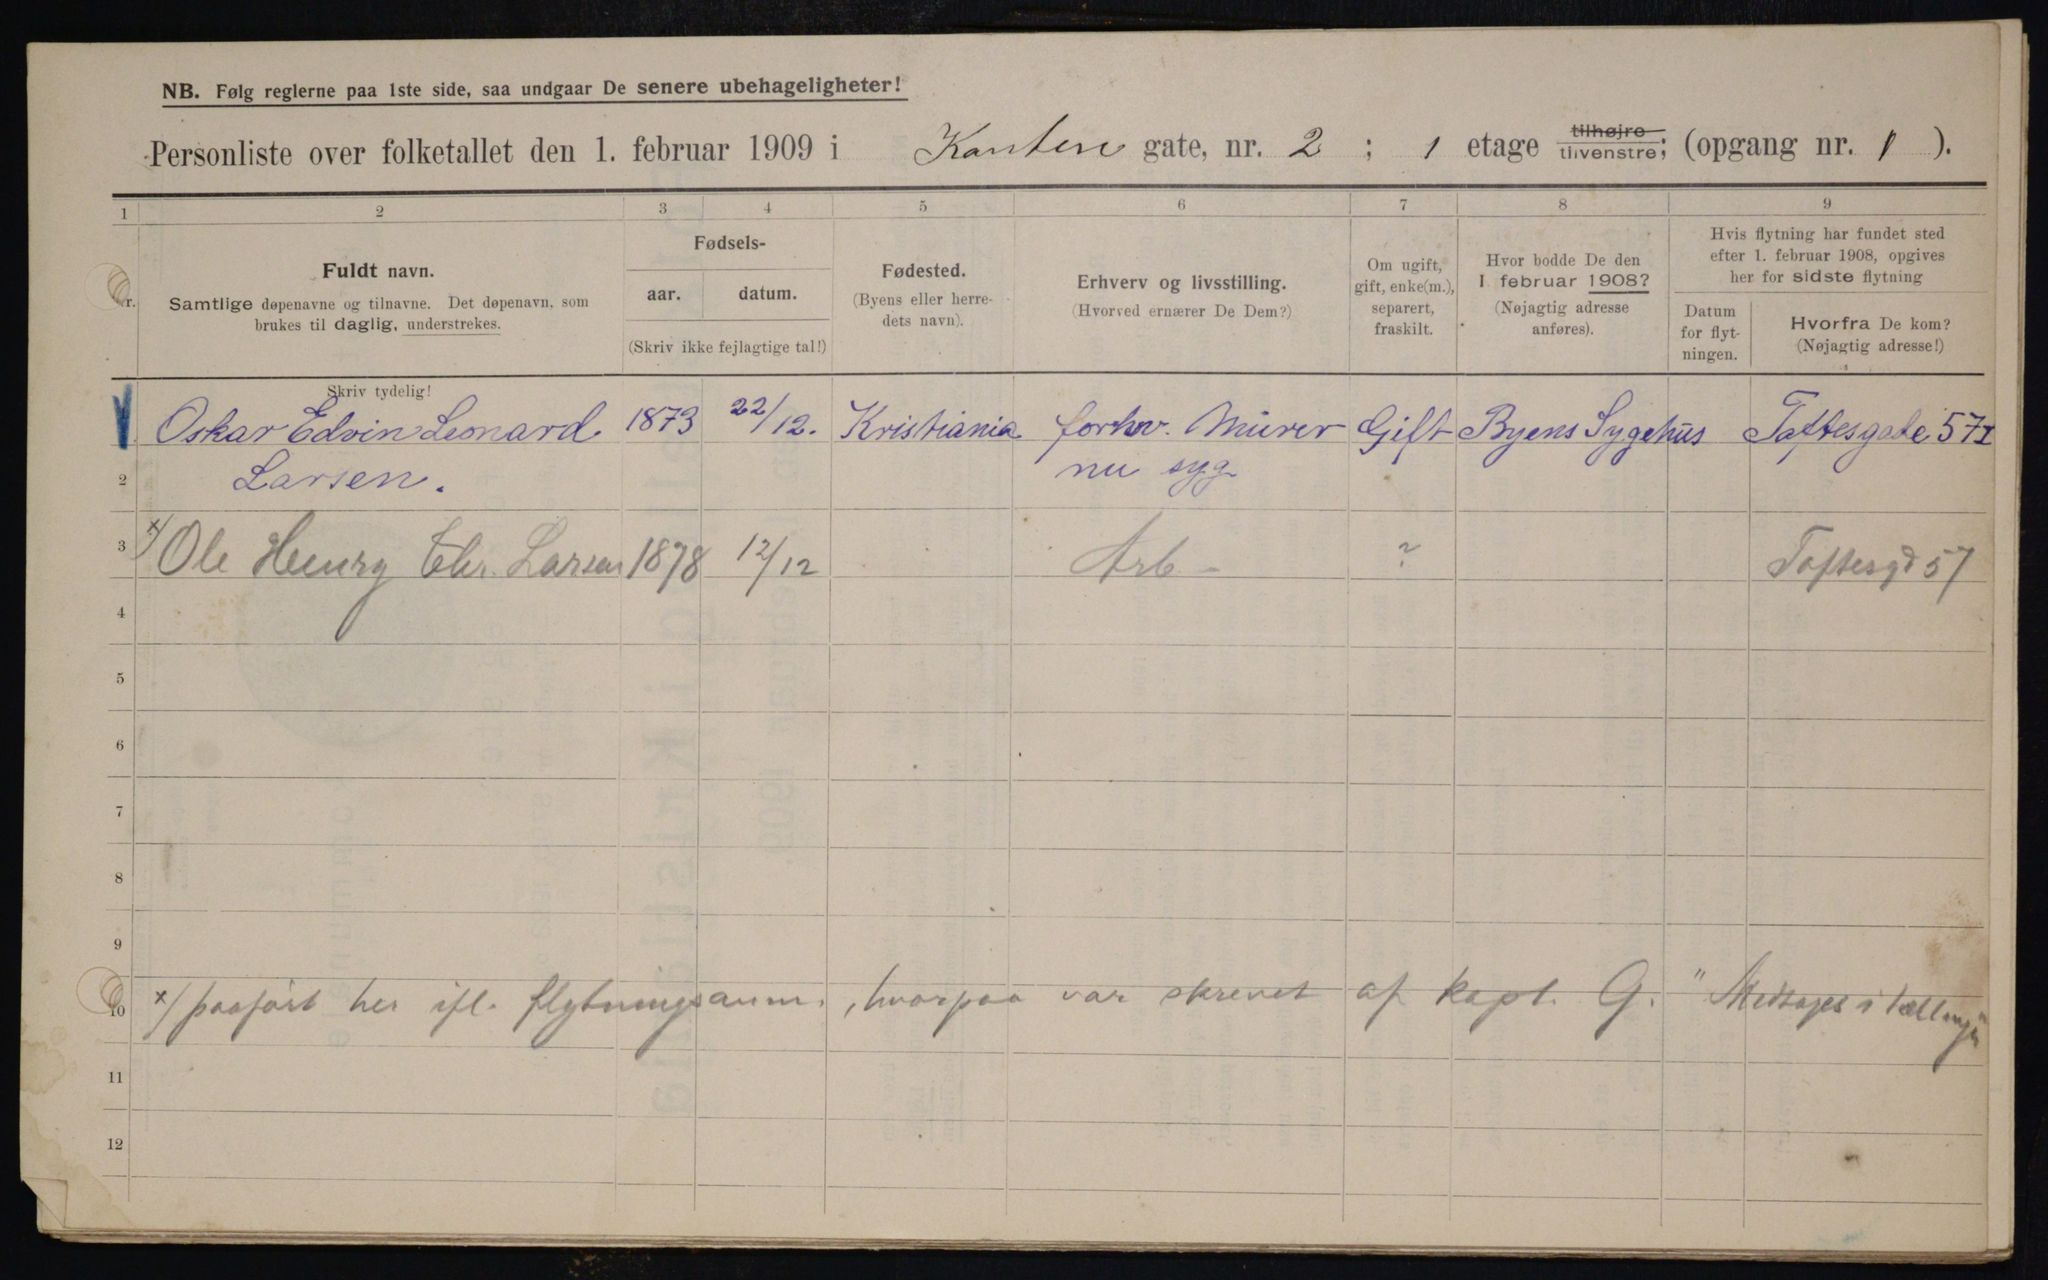 NB. Følg reglerne paa 1ste side, saa undgaar De senere ubehageligheter!
Personliste over folketallet den 1. februar 1909 i Kanten gate, nr. 2 ; 1 etage tilhøjre tilvenstre; (opgang nr. 1 ).
1 2 3 4 5 6 7 8 9
Nr.
Fuldt navn.
Samtlige døpenavne og tilnavne. Det døpenavn, som
brukes til daglig, understrekes.
Skriv tydelig!
Fødsels-
aar. datum.
(Skriv ikke fejlagtige tal!)
Fødested.
(Byens eller herre-
dets navn).
Erhverv og livsstilling.
(Hvorved ernærer De Dem?)
Om ugift,
gift, enke(m.),
separert,
fraskilt.
Hvor bodde De den
1 februar 1908?
(Nøjagtig adresse
anføres).
Hvis flytning har fundet sted
efter 1. februar 1908, opgives
her for sidste flytning
Datum
for flyt-
ningen.
Hvorfra De kom?
(Nøjagtig adresse!)
Oskar Edvin Leonard 1873 22/12. Kristiania forhv. Mürer Gift Byens Sygehüs Toftesgate 57 I
2 Larsen. nu syg
3 x/ Ole Henry Chr. Larsen 1878 12/12 Arb - ? Toftesgd 57
4
5
6
7
8
9
10 x/ paaført her ifl. flytningsanm., hvorpaa var skrevet af kapt. G. "Medtages i tællingen"
11
12